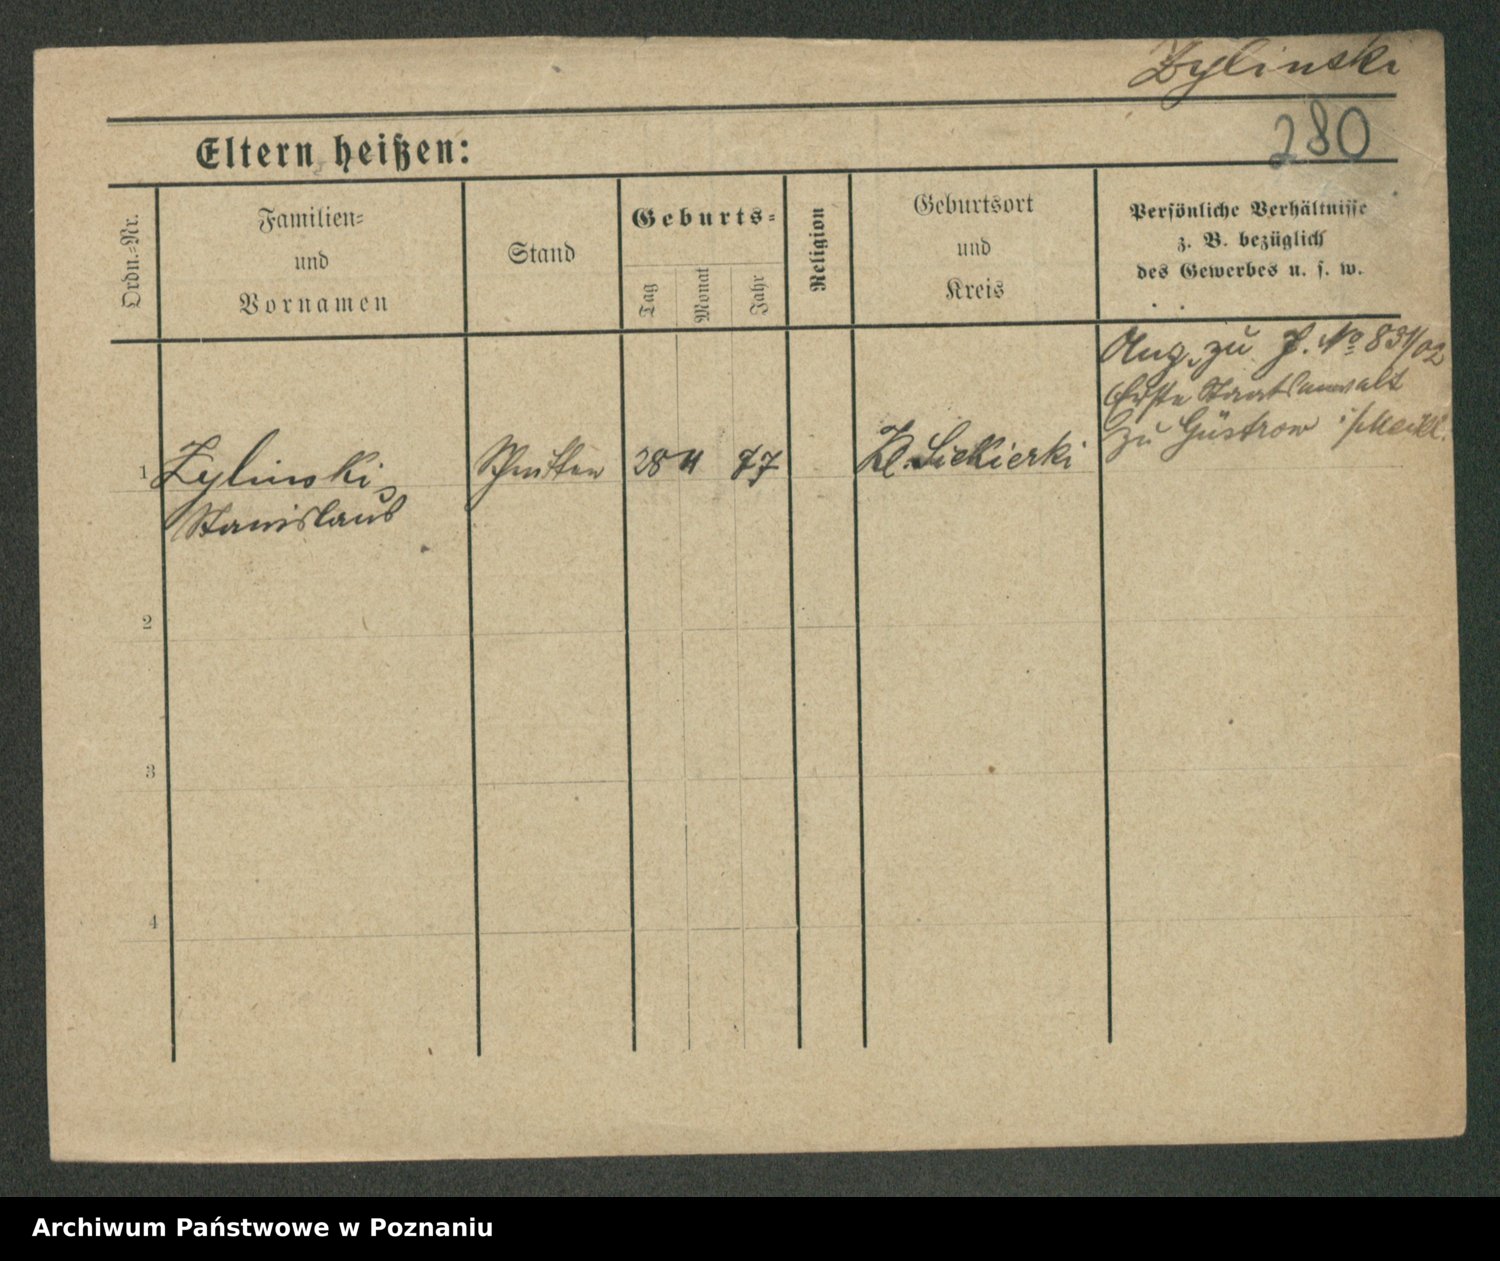 Zylinski
280
Eltern heißen:
Ordn.-Nr.
Familien-
und
Vornamen
Stand
Geburts-
Tag
Monat
Jahr
Religion
Geburtsort
und
Kreis
Persönliche Verhältnisse
z. B. bezüglich
des Gewerbes u. s. w.
Ang. zu J. No 831/02
Erste Staatsanwalt
zu Güstrow i/Meckl.
1 Zylinski Schnitter 28 4 77 Kl. Siekierki
Stanislaus
2
3
4
Archiwum Państwowe w Poznaniu